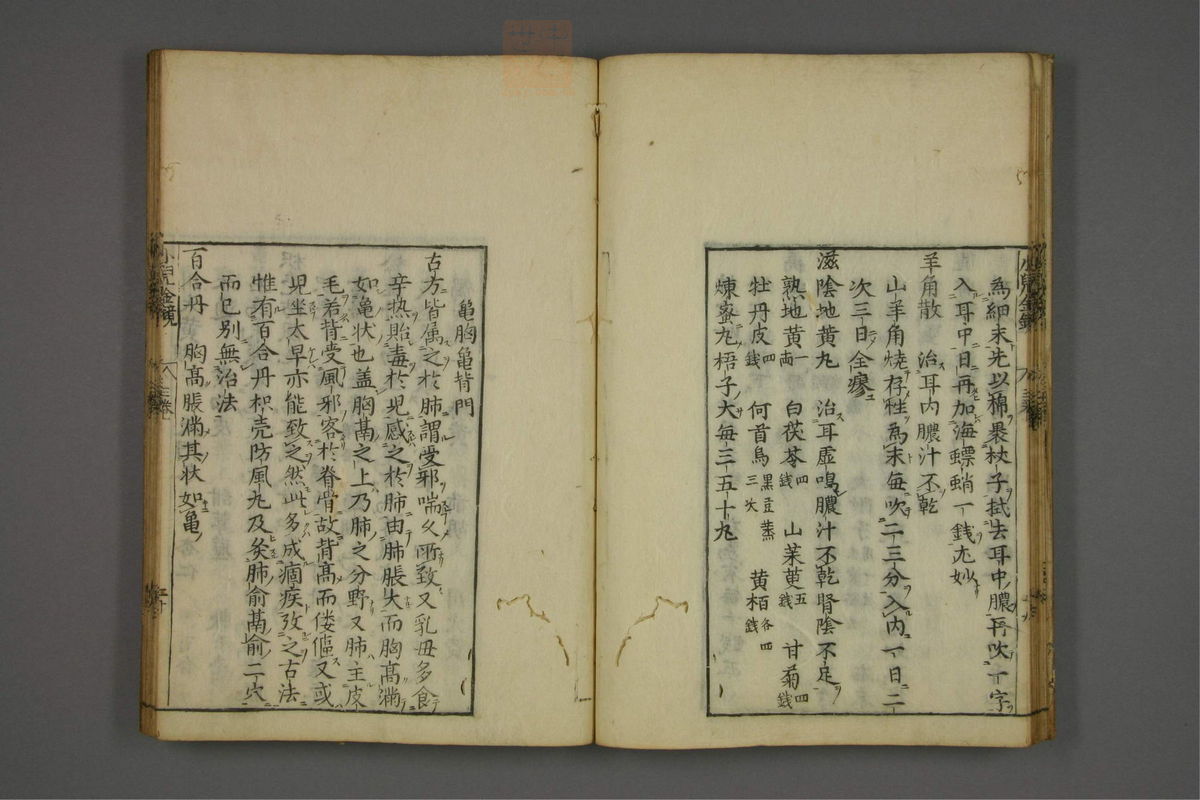 為細末先以綿裹杖子拭去耳中膿再吹一字
入耳中日再加海螵蛸一錢尤妙
羊角散 治耳内膿汁不乾
山羊角燒存性為末毎吹二三分入内一日二
次三日全瘳
滋陰地黄丸 治耳虚鳴膿汁不乾腎陰不足
熟地黄一両 白茯苓四錢 山茱萸五錢 甘菊四錢
牡丹皮四錢 何首烏黒豆蒸三次 黄栢各四錢
煉蜜丸梧子大毎三五十丸
亀胸亀背門
古方皆属之於肺謂受邪喘欠所致又乳母多食
辛热貽毒於児感之於肺由肺脹大而胸髙満
如亀状也盖胸髙之上乃肺之分野又肺主皮
毛若背受風邪客於脊膂故背髙而僂傴又或
児坐太早亦能致之然此多成痼疾攷之古法
惟有百合丹枳壳防風丸及灸肺俞膈俞二穴
而已别無治法
百合丹 胸髙脹満其状如亀
小児全鏡
三巻